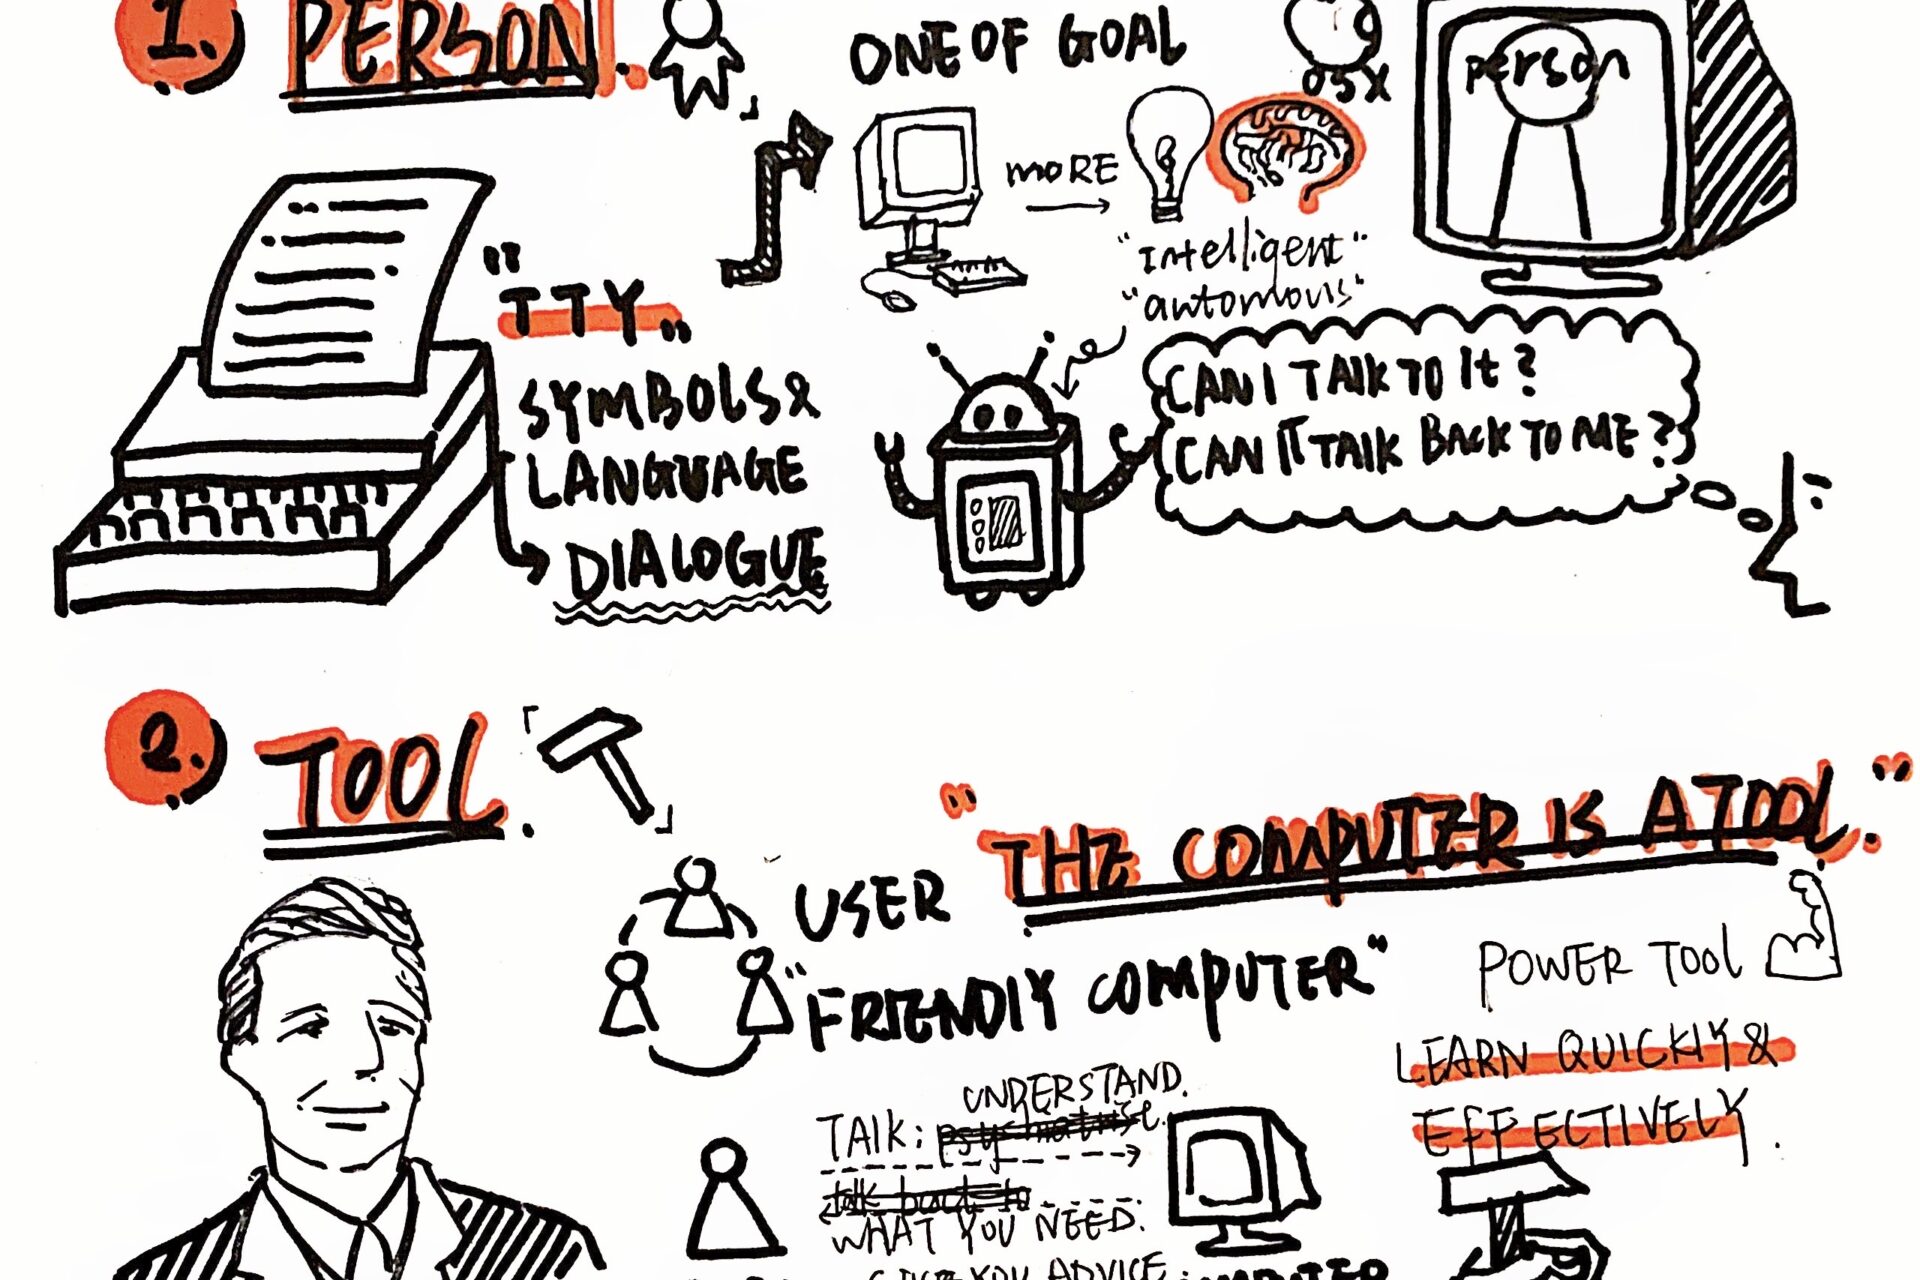 1.
PERSON.
ONE OF GOAL
05X
person
MORE
"Intelligent"
"automovis"
"TTY"
SYMBOLS &
LANGUAGE
DIALOGUE
CAN I TALK TO It?
CAN IT TALK BACK TO ME?
2.
TOOL.
"THE COMPUTER IS A TOOL."
USER
"FRIENDLY COMPUTER"
POWER TOOL
LEARN QUICKLY &
EFFECTIVELY.
UNDERSTAND.
TALK:
talk back to
WHAT YOU NEED.
YOU ADVICE